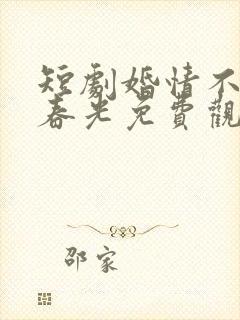 短劇婚情不
春光免費觀
邵家